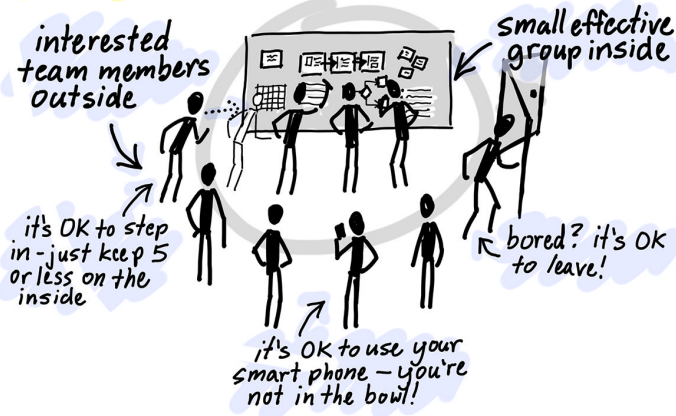 interested
team members
outside
small effective
group inside
it's OK to step
in - just keep 5
or less on the
inside
bored? it's OK
to leave!
it's OK to use your
smart phone – you're
not in the bowl!